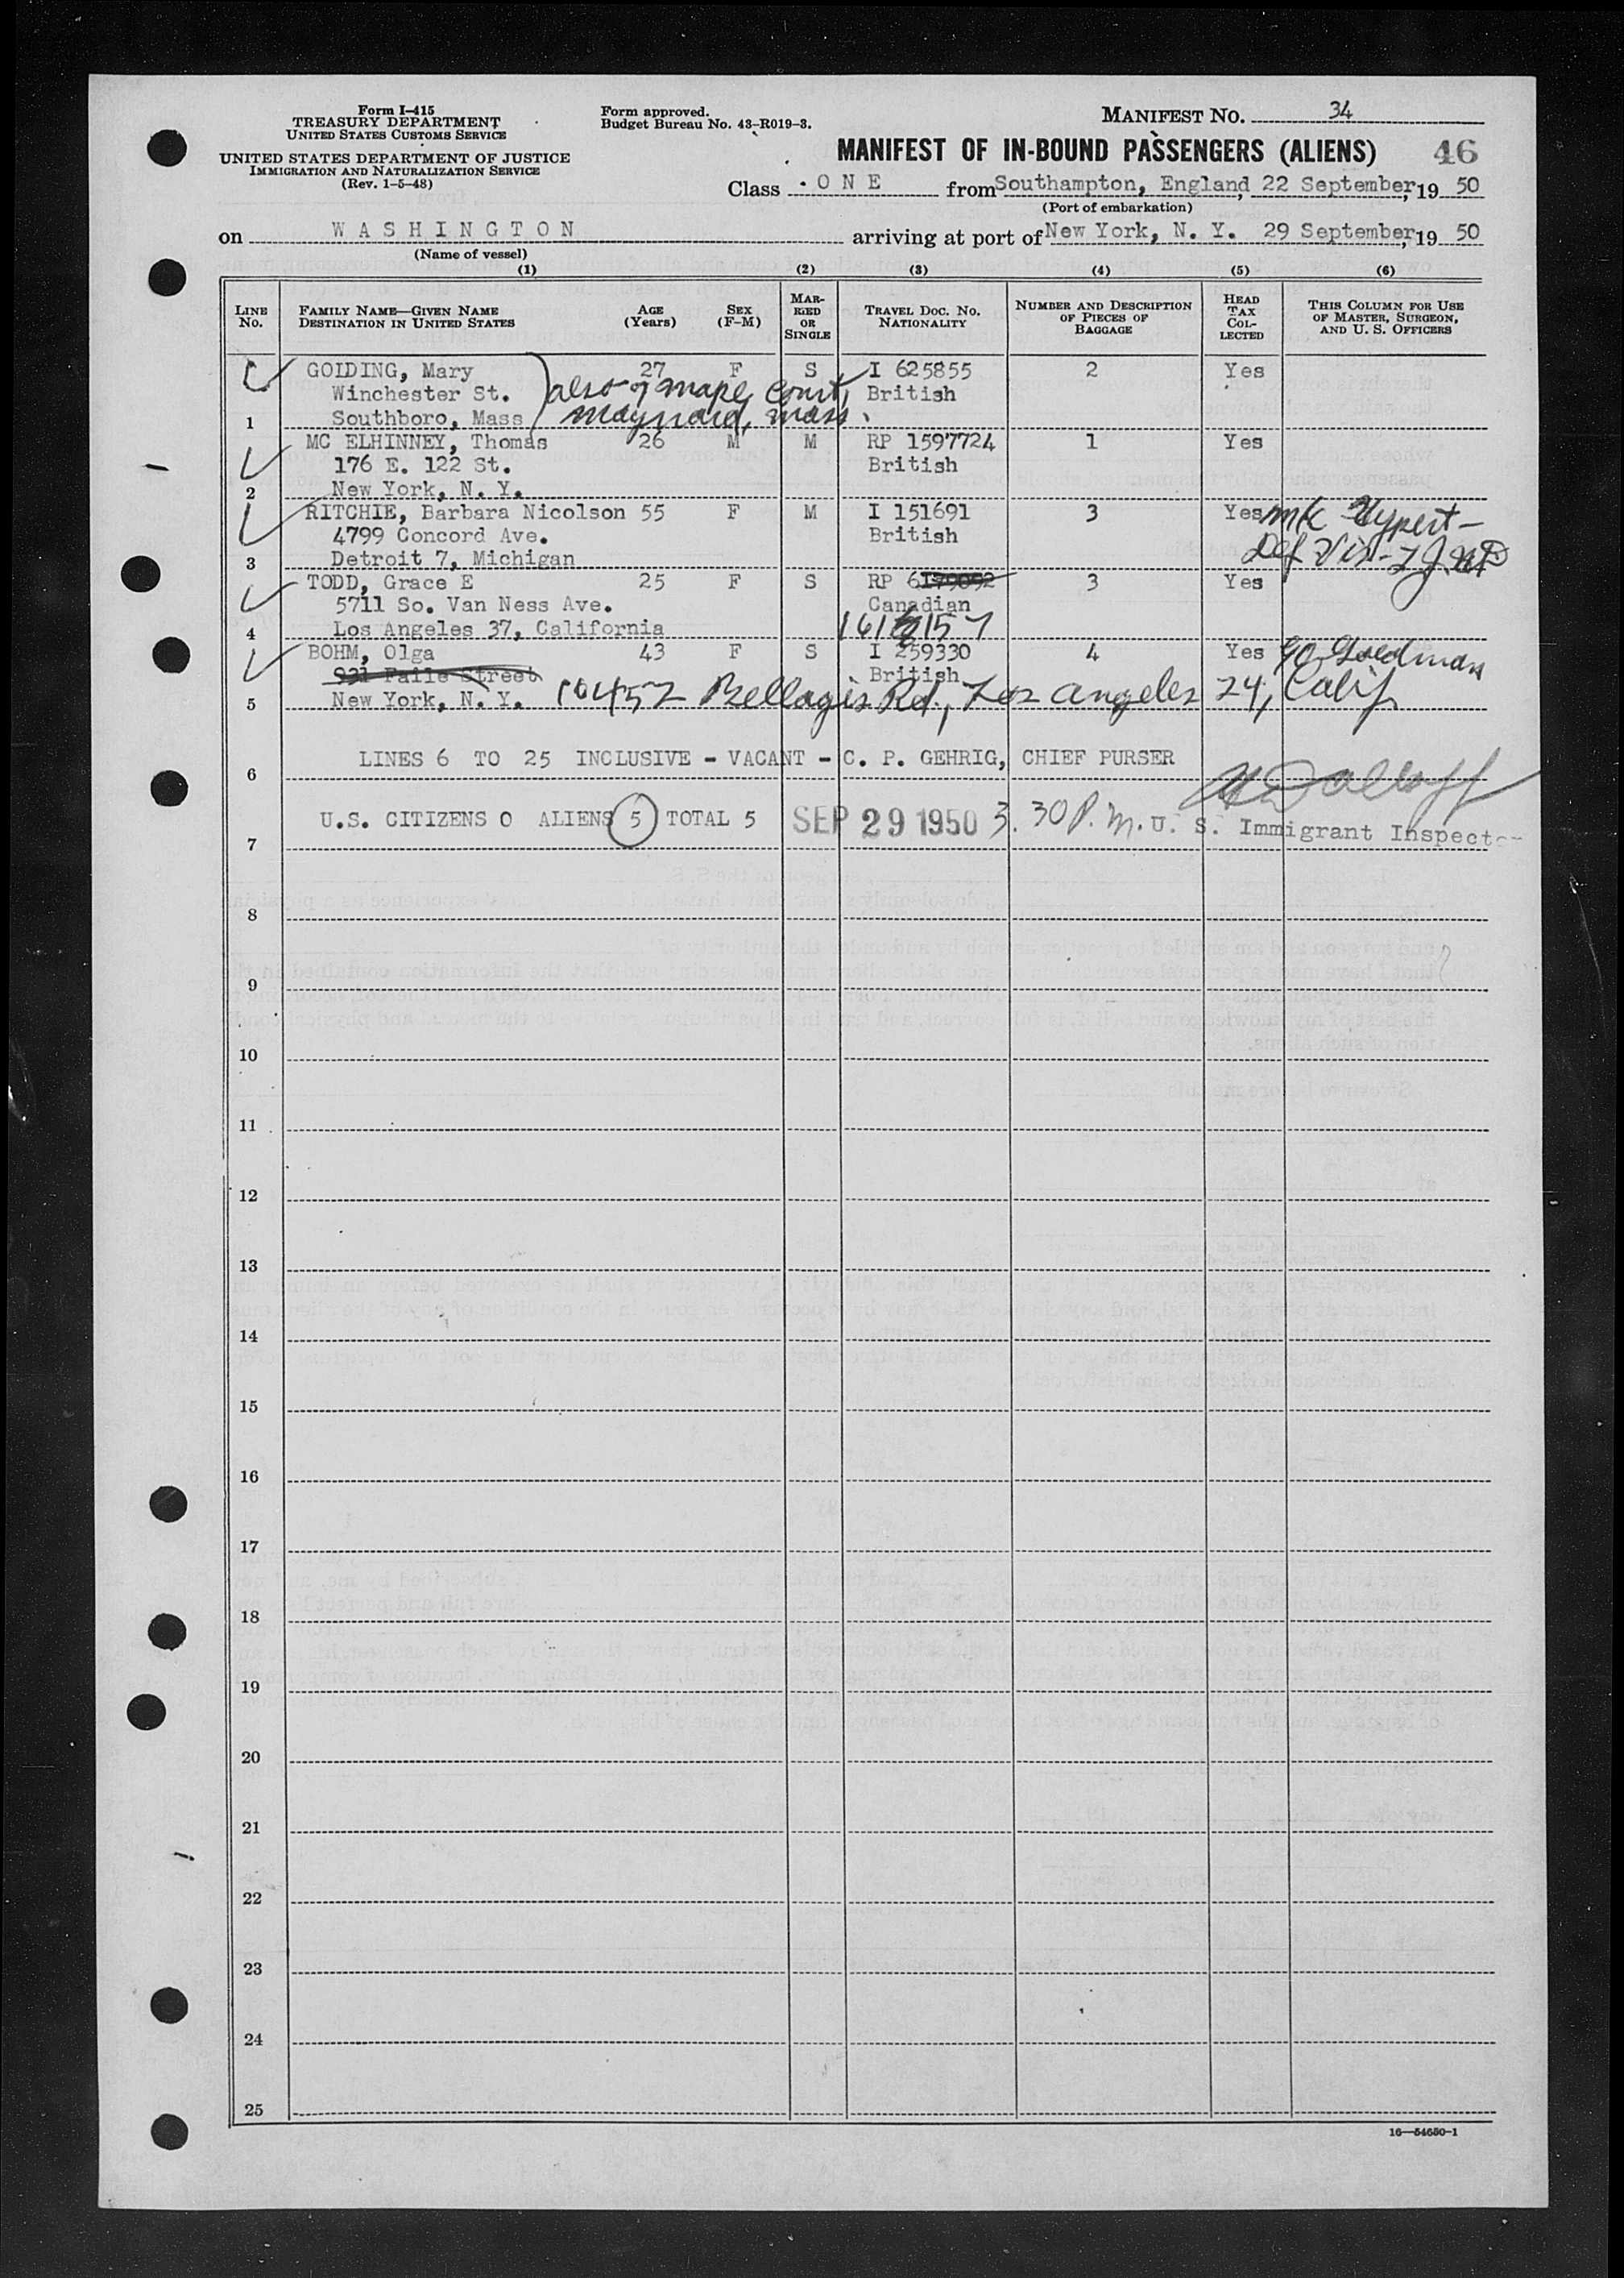 Form I-415
TREASURY DEPARTMENT
UNITED STATES CUSTOMS SERVICE
UNITED STATES DEPARTMENT OF JUSTICE
IMMIGRATION AND NATURALIZATION SERVICE
(Rev. 1-5-48)
Form approved.
Budget Bureau No. 43-R019-3.
MANIFEST NO. 34
MANIFEST OF IN-BOUND PASSENGERS (ALIENS) 46
Class ONE from Southampton, England, 22 September, 19 50
(Port of embarkation)
on WASHINGTON arriving at port of New York, N. Y. 29 September, 19 50
(Name of vessel)
(1) (2) (3) (4) (5) (6)
LINE NO.
FAMILY NAME—GIVEN NAME
DESTINATION IN UNITED STATES
AGE (Years)
SEX (F-M)
MARRIED OR SINGLE
TRAVEL DOC. NO. NATIONALITY
NUMBER AND DESCRIPTION OF PIECES OF BAGGAGE
HEAD TAX COLLECTED
THIS COLUMN FOR USE OF MASTER, SURGEON, AND U. S. OFFICERS
GOLDING, Mary 27 F S I 625855 2 Yes
Winchester St. also of Maple Court, British
1 Southboro, Mass Maynard, Mass.
MC ELHINNEY, Thomas 26 M M RP 1597724 1 Yes
176 E. 122 St. British
2 New York, N. Y.
RITCHIE, Barbara Nicolson 55 F M I 151691 3 Yes
4799 Concord Ave. British
3 Detroit 7, Michigan
TODD, Grace E 25 F S RP 6179092 3 Yes
5711 So. Van Ness Ave. Canadian
4 Los Angeles 37, California
BOHM, Olga 43 F S I 259330 4 Yes c/o Goldman
931 Faile Street British
5 New York, N. Y. 10457 Bellagio Rd., Los Angeles 24, Calif.
LINES 6 TO 25 INCLUSIVE - VACANT - C. P. GEHRIG, CHIEF PURSER
6
U.S. CITIZENS 0 ALIENS 5 TOTAL 5 SEP 29 1950 3.30 P.M. U. S. Immigrant Inspector
7
8
9
10
11
12
13
14
15
16
17
18
19
20
21
22
23
24
25
16—54650-1